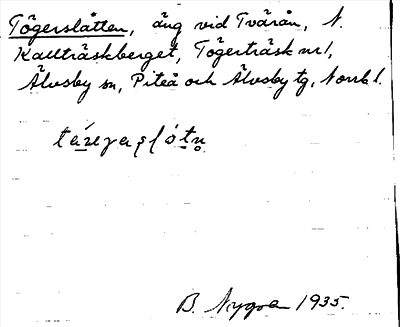 Tögerslåtten, äng vid Tvärån, N.
Kallträskberget, Tögerträsk nr 1,
Älvsby sn, Piteå och Älvsby tg, Norrb l.
B. Nygren 1935.